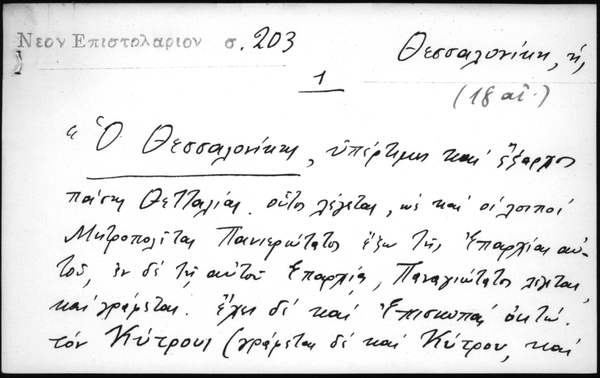 Νεον Επιστολαριον σ. 203
Θεσσαλονίκη, ἡ,
1
(18 αἰ.)
“Ὁ Θεσσαλονίκης, ὑπέρτιμος καὶ ἔξαρχος
πάσης Θετταλίας. οὗτος λέγεται, ὡς καὶ οἱ λοιποί
Μητροπολῖται Πανιερώτατος ἔξω τῆς Ἐπαρχίας αὐ-
τοῦ, ἐν δὲ τῇ αὐτοῦ Ἐπαρχίᾳ, Παναγιώτατος λέγεται
καὶ γράφεται. ἔχει δὲ καὶ Ἐπισκοπάς ὀκτώ.
τόν Κύτρους (γράφεται δὲ καὶ Κύτρου, καὶ